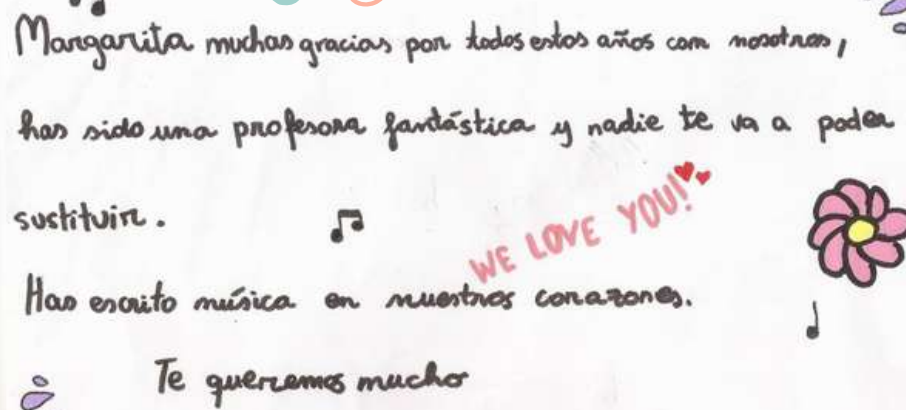 Margarita muchas gracias por todos estos años con nosotros,
has sido una profesora fantástica y nadie te va a poder
sustituir.
WE LOVE YOU!
Has escrito música en nuestros corazones.
Te queremos mucho